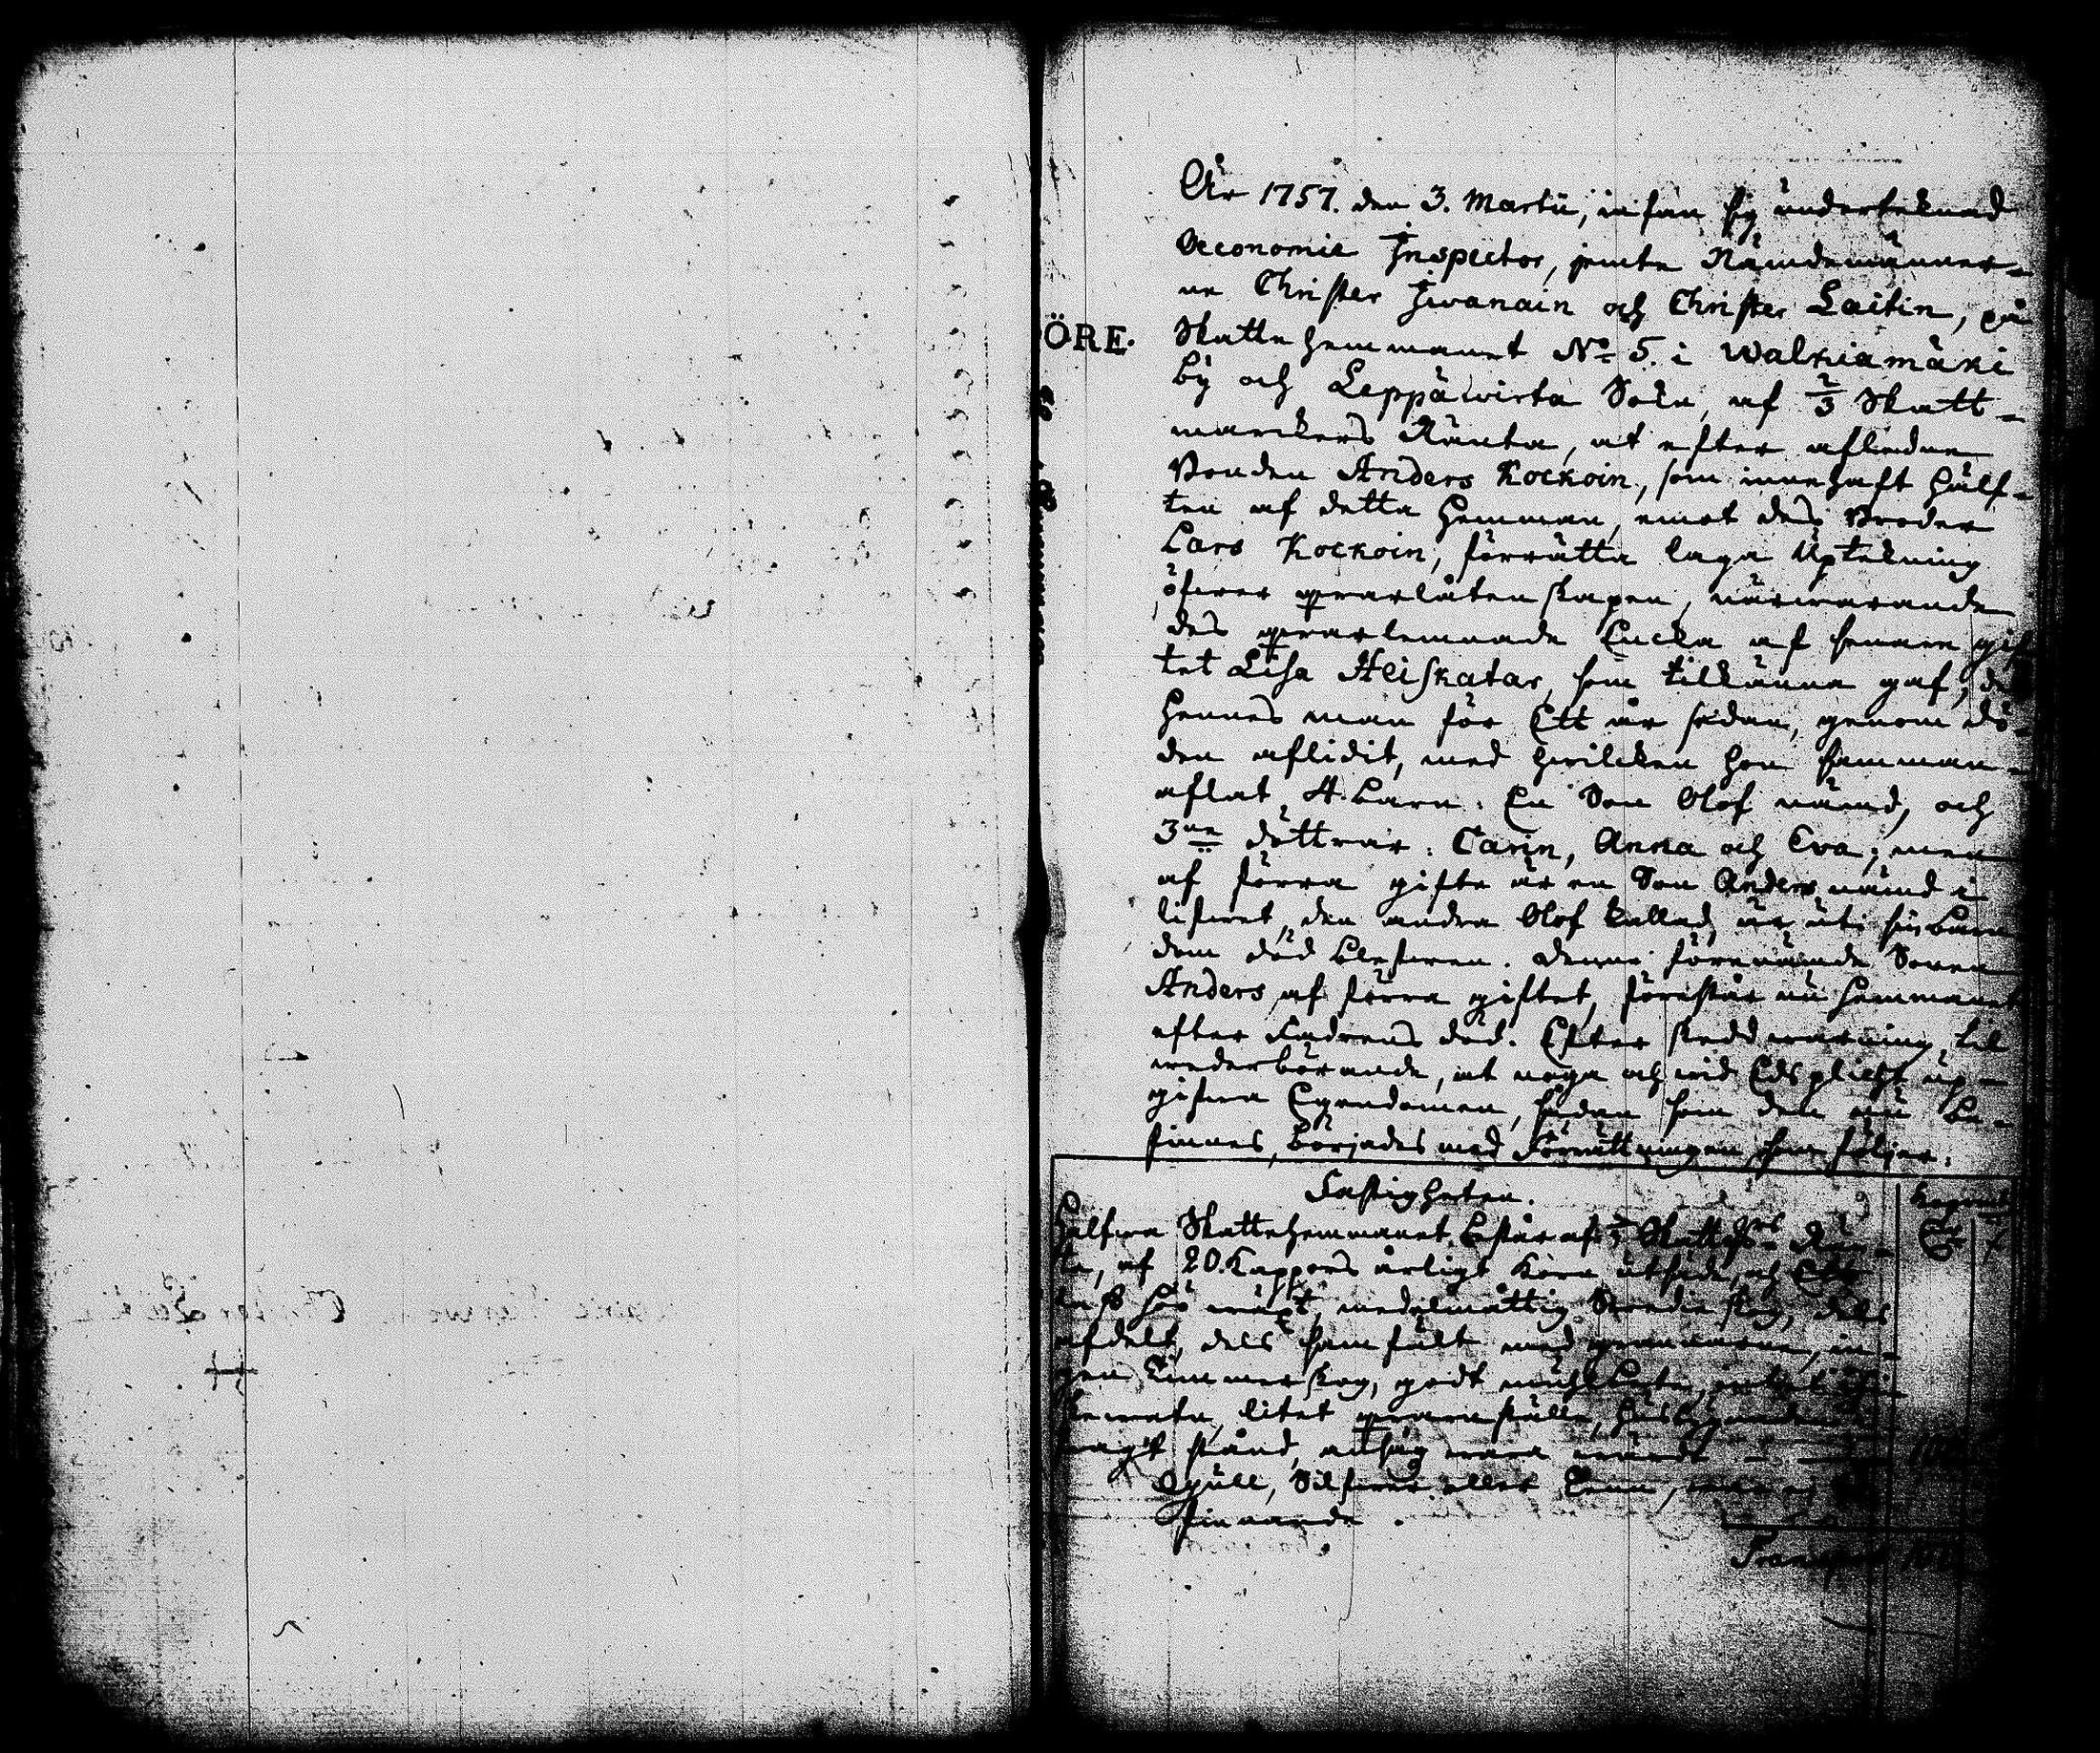 ÖRE.
År 1757. den 3. Martii, infan sig underteknad
Oeconomie Inspector, jemte Nämdemänner-
ne Christer Iwanain och Christer Laitin, på
Skatte hemmanet No 5. i Walkiamäki
by och Leppäwirta Sokn, af 2/3 Skatt-
markers Ränta, at efter aflednen
Bonden Anders Kockoin, som innehaft hälf-
ten af detta Hemman, emot des Broder
Lars Kockoin, förrätta laga Uptekning
öfwer qwarlåtenskapen, närwarande
des qwarlemnade Encka af senare gif
tet Lisa Heiskatar, som tilkänna gaf, de
hennes man för Ett år sedan, genom dö-
den aflidit, med hwilcken hon samman-
aflat 4. barn. En Son Olof nämd, och
3ne döttrar: Carin, Anna och Eva; men
af förra gifte är en Son Anders nämd i
lifwet, den andra Olof kallad, är uti sin barn
dom död blefwen. Denne förenämde Sonen
Anders af förra giftet, förestår nu hemmanet
efter Fadrens död. Efter skedd warning til
wederbörande, at noga och wid Eds plickt up-
gifwa Egendomen, sådan som den nu be-
finnes, börjades med Förrättningen som följer:
Fastigheten.
Halfwa Skattehemmanet består af
af 20. Kappors årligt Korn utsäde, och Ett
lass hö wäxt, medelmåttig Swedie skog, dels
afdelt, dels samfält med grannarne, in-
gen Timmerskog, godt
litet qwarnställe,
stånd, ansåg wara wärdt
Gull, Silfwer eller Tenn,
finnande.
Transport